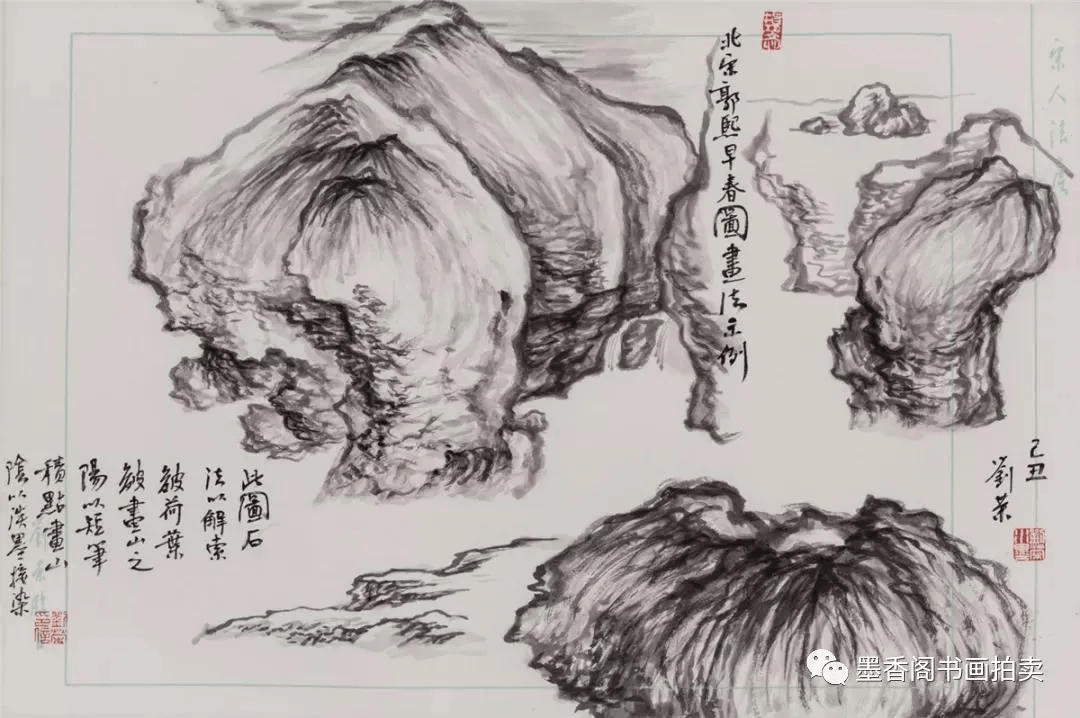 宋人法
己丑
劉荣
北宋郭熙早春圖畫法示例
此圖石
法以解索
皴荷葉
皴畫山之
陽以短筆
積點畫山
陰以淡墨接染
墨香阁书画拍卖